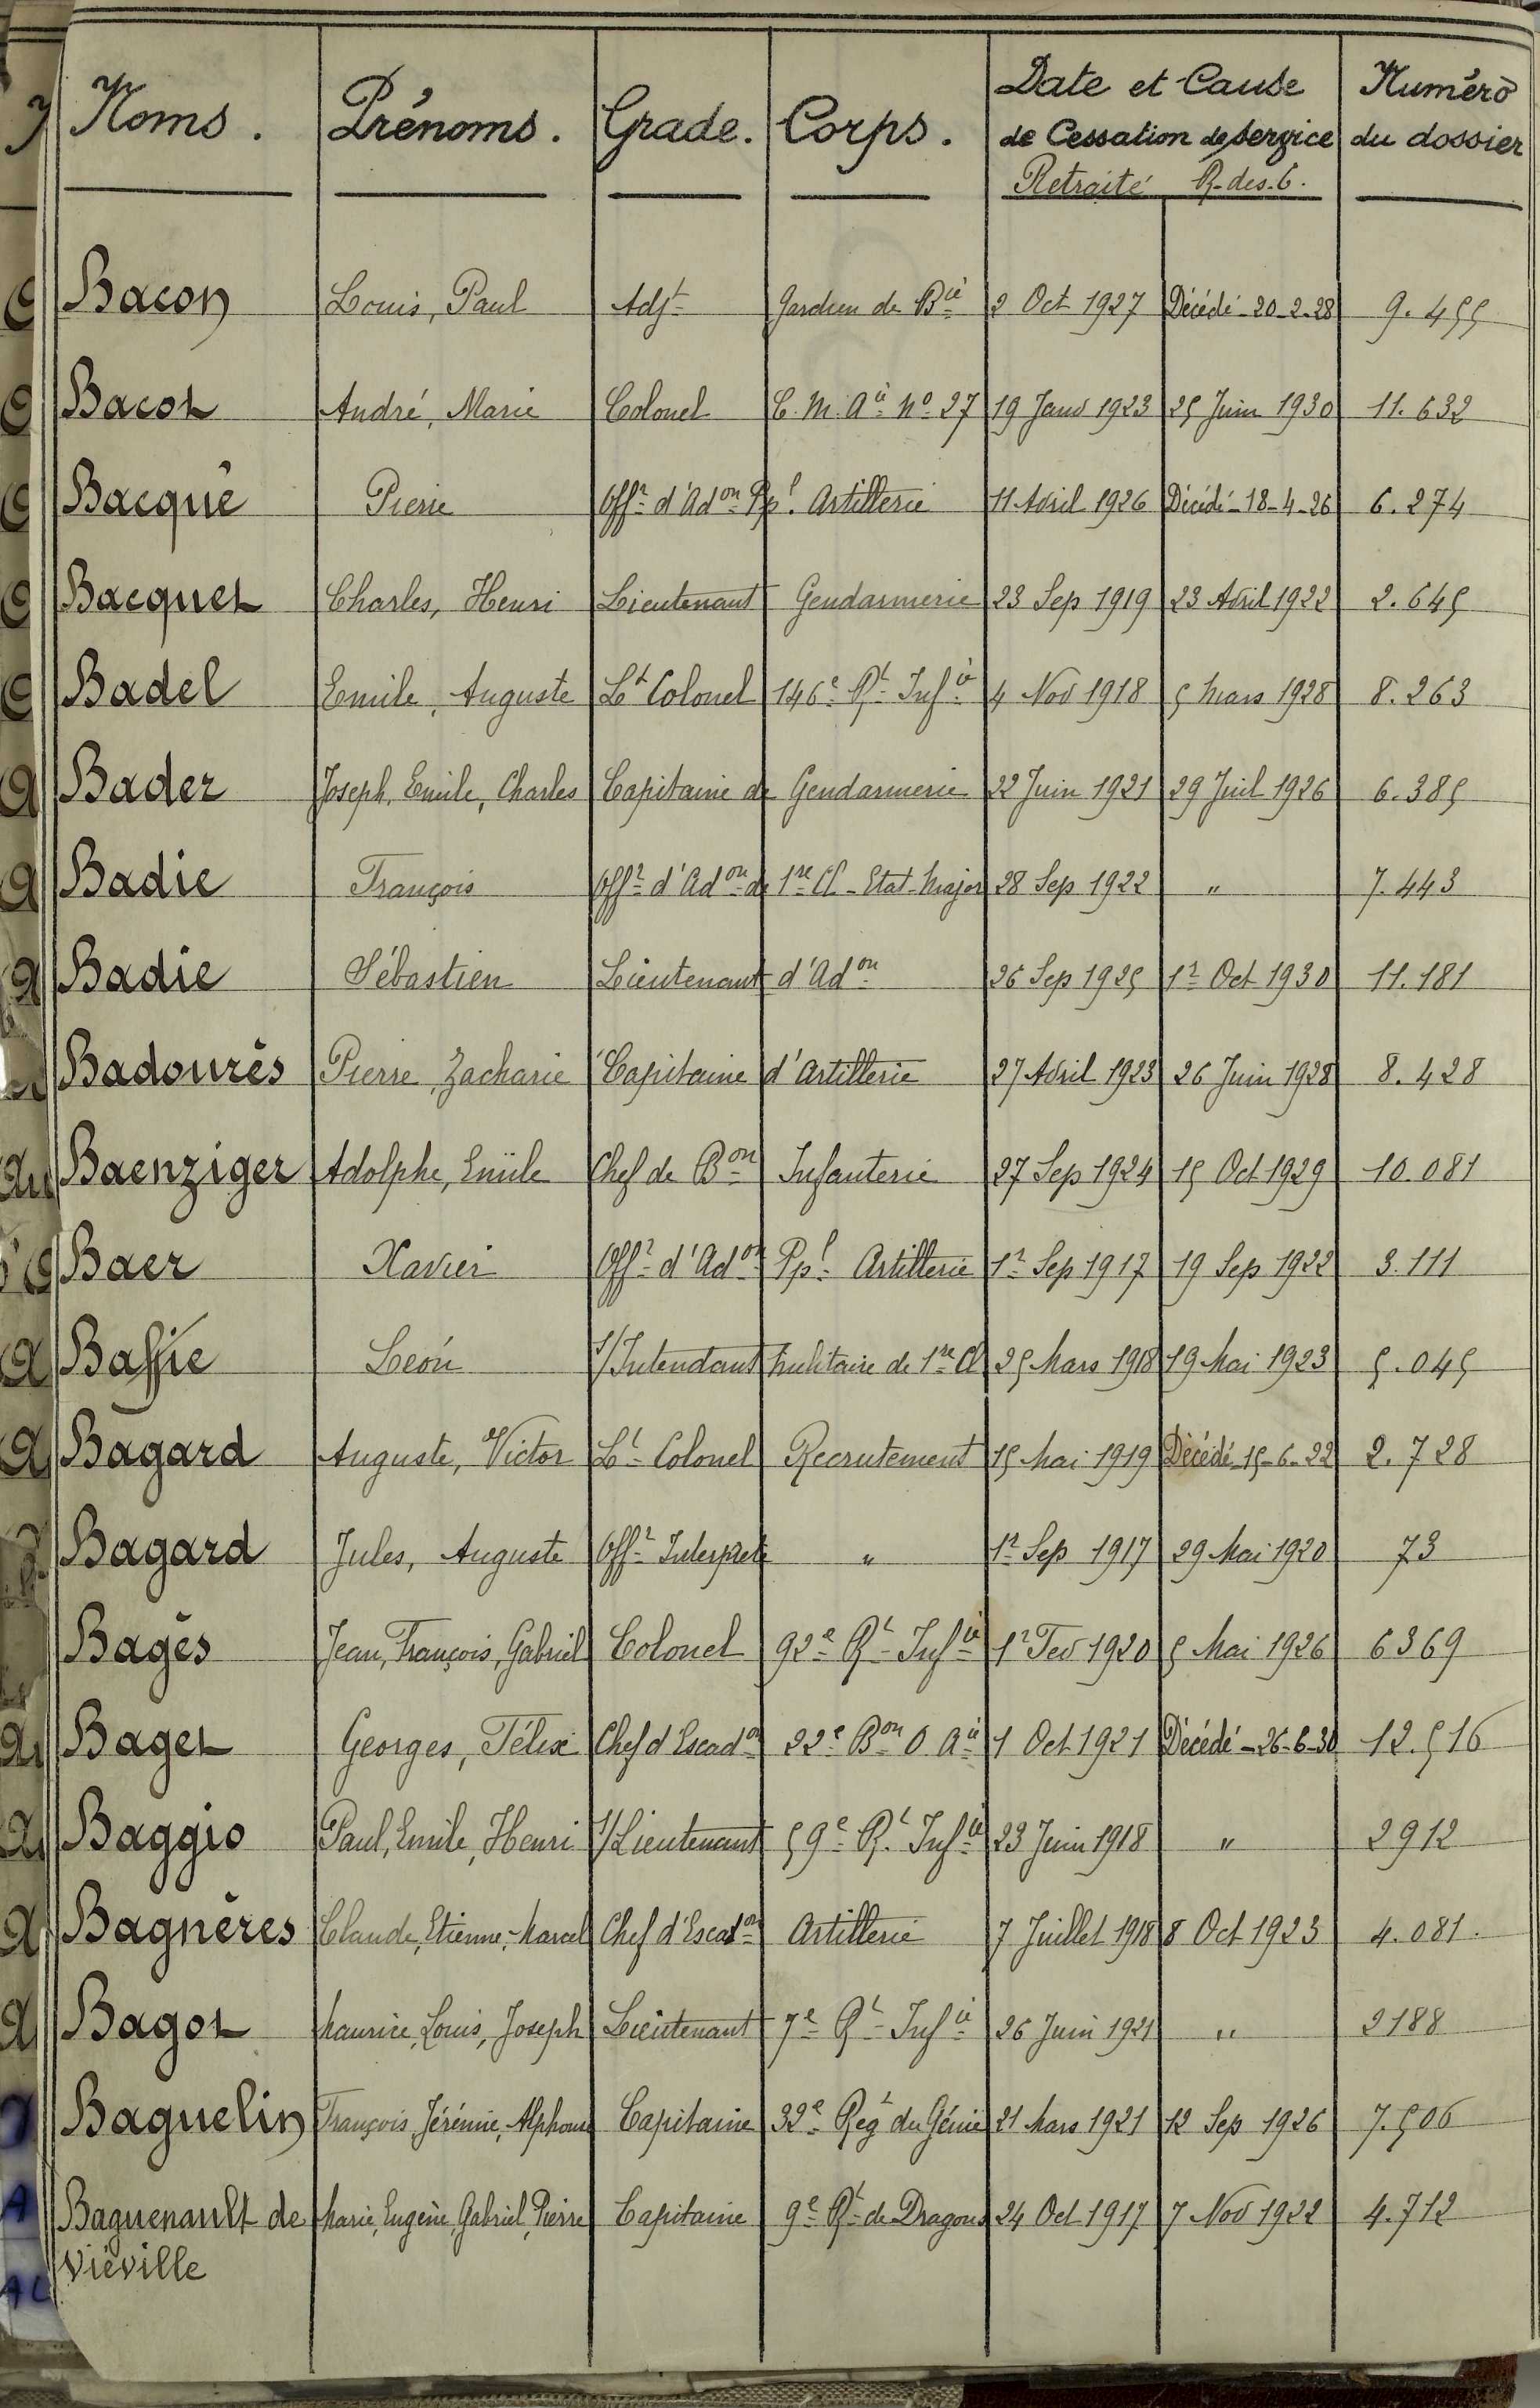 Noms. Prénoms. Grade. Corps. Date et Cause de Cessation de Service Numéro du dossier
Retraité R. des. C.
Bacon Louis, Paul Adjt Gardien de Bie 2 Oct 1927 Décédé-20-2-28 9.455
Bacot André, Marie Colonel C. M. Aie No 27 19 Janv 1923 25 Juin 1930 11.632
Bacqué Pierre Offr d'Adon Ppl. Artillerie 11 Avril 1926 Décédé-18-4-26 6.274
Bacquet Charles, Henri Lieutenant Gendarmerie 23 Sep 1919 23 Avril 1922 2.645
Badel Emile, Auguste Lt Colonel 146e Rt Infie 4 Nov 1918 5 Mars 1928 8.263
Bader Joseph, Emile, Charles Capitaine de Gendarmerie 22 Juin 1921 29 Juil 1926 6.385
Badie François Offr d'Adon de 1re Cl - Etat-Major 28 Sep 1922 " 7.443
Badie Sébastien Lieutenant d'Adon 26 Sep 1925 1r Oct 1930 11.181
Badourès Pierre, Zacharie Capitaine d'Artillerie 27 Avril 1923 26 Juin 1928 8.428
Baenziger Adolphe, Emile Chef de Bon Infanterie 27 Sep 1924 15 Oct 1929 10.081
Baer Xavier Offr d'Adon Ppl Artillerie 1r Sep 1917 19 Sep 1922 3.111
Baffie Léon S/Intendant Militaire de 1re Cl 25 Mars 1918 19 Mai 1923 5.045
Bagard Auguste, Victor Lt Colonel Recrutement 15 Mai 1919 Décédé-15-6-22 2.728
Bagard Jules, Auguste Offr Interprète " 1r Sep 1917 29 Mai 1920 73
Bagès Jean, François, Gabriel Colonel 92e Rt Infie 1r Fev 1920 5 Mai 1926 6369
Baget Georges, Félix Chef d'Escadon 22e Bon O Aie 1 Oct 1921 Décédé-26-6-30 12.516
Baggio Paul, Emile, Henri S/Lieutenant 59e Rt Infie 23 Juin 1918 " 2912
Bagnères Claude, Etienne, Marcel Chef d'Escadon Artillerie 7 Juillet 1918 8 Oct 1923 4.081.
Bagot Maurice, Louis, Joseph Lieutenant 7e Rt Infie 26 Juin 1921 " 2188
Baguelin François, Jérémie, Alphonse Capitaine 32e Régt du Génie 21 Mars 1921 12 Sep 1926 7.506
Baguenault de Marie, Eugène, Gabriel, Pierre Capitaine 9e Rt de Dragons 24 Oct 1917 7 Nov 1922 4.712
Viéville